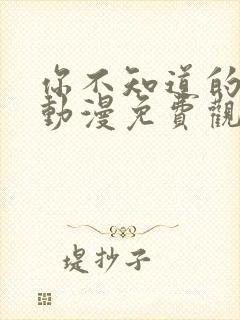 你不知道的
動漫免費觀
堤抄子